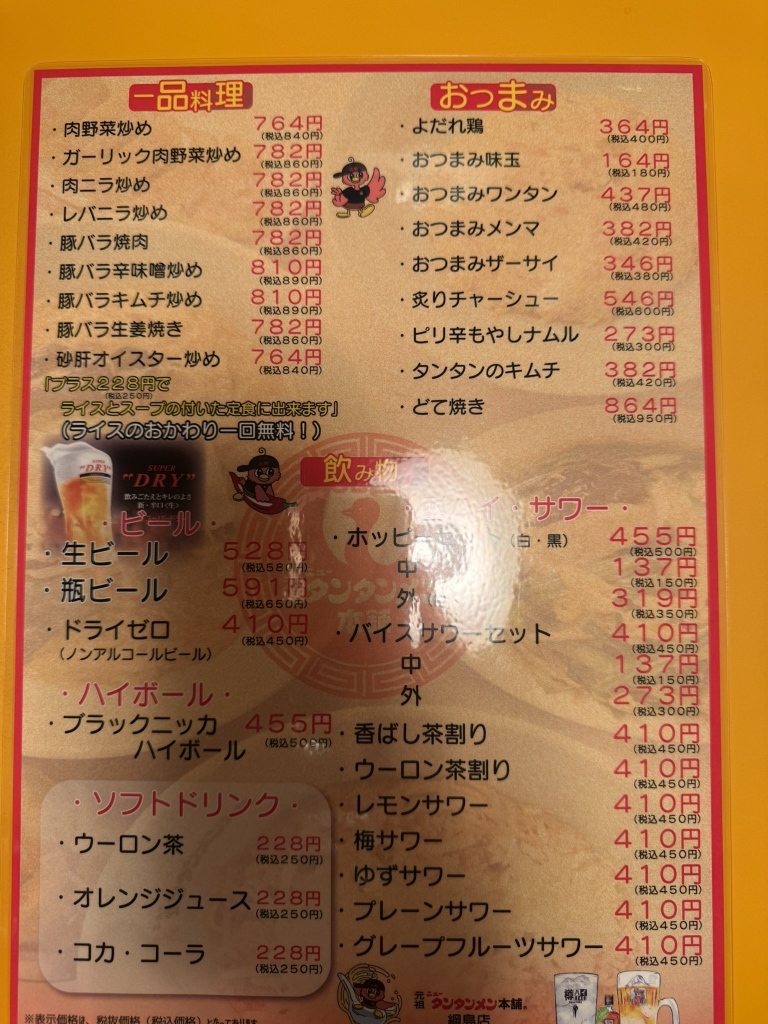 一品料理
・肉野菜炒め 764円
(税込840円)
・ガーリック肉野菜炒め 782円
(税込860円)
・肉ニラ炒め 782円
(税込860円)
・レバニラ炒め 782円
(税込860円)
・豚バラ焼肉 782円
(税込860円)
・豚バラ辛味噌炒め 810円
(税込890円)
・豚バラキムチ炒め 810円
(税込890円)
・豚バラ生姜焼き 782円
(税込860円)
・砂肝オイスター炒め 764円
(税込840円)
「プラス228円で
(税込250円)
ライスとスープの付いた定食に出来ます」
(ライスのおかわり一回無料!)
おつまみ
・よだれ鶏 364円
(税込400円)
・おつまみ味玉 164円
(税込180円)
・おつまみワンタン 437円
(税込480円)
・おつまみメンマ 382円
(税込420円)
・おつまみザーサイ 346円
(税込380円)
・炙りチャーシュー 546円
(税込600円)
・ピリ辛もやしナムル 273円
(税込300円)
・タンタンのキムチ 382円
(税込420円)
・どて焼き 864円
(税込950円)
飲み物
"DRY"
SUPER
"DRY"
飲みごたえとキレのよさ
新・辛口<生>
・ビール・
・生ビール 528円
(税込580円)
・瓶ビール 591円
(税込650円)
・ドライゼロ 410円
(税込450円)
(ノンアルコールビール)
・ハイボール・
・ブラックニッカ 455円
ハイボール (税込500円)
・ソフトドリンク・
・ウーロン茶 228円
(税込250円)
・オレンジジュース 228円
(税込250円)
・コカ・コーラ 228円
(税込250円)
・サワー・
・ホッピーセット(白・黒) 455円
(税込500円)
中 137円
(税込150円)
外 319円
(税込350円)
・バイスサワーセット 410円
(税込450円)
中 137円
(税込150円)
外 273円
(税込300円)
・香ばし茶割り 410円
(税込450円)
・ウーロン茶割り 410円
(税込450円)
・レモンサワー 410円
(税込450円)
・梅サワー 410円
(税込450円)
・ゆずサワー 410円
(税込450円)
・プレーンサワー 410円
(税込450円)
・グレープフルーツサワー 410円
(税込450円)
元祖ニュータンタンメン本舗
綱島店
※表示価格は、税抜価格(税込価格)となっております